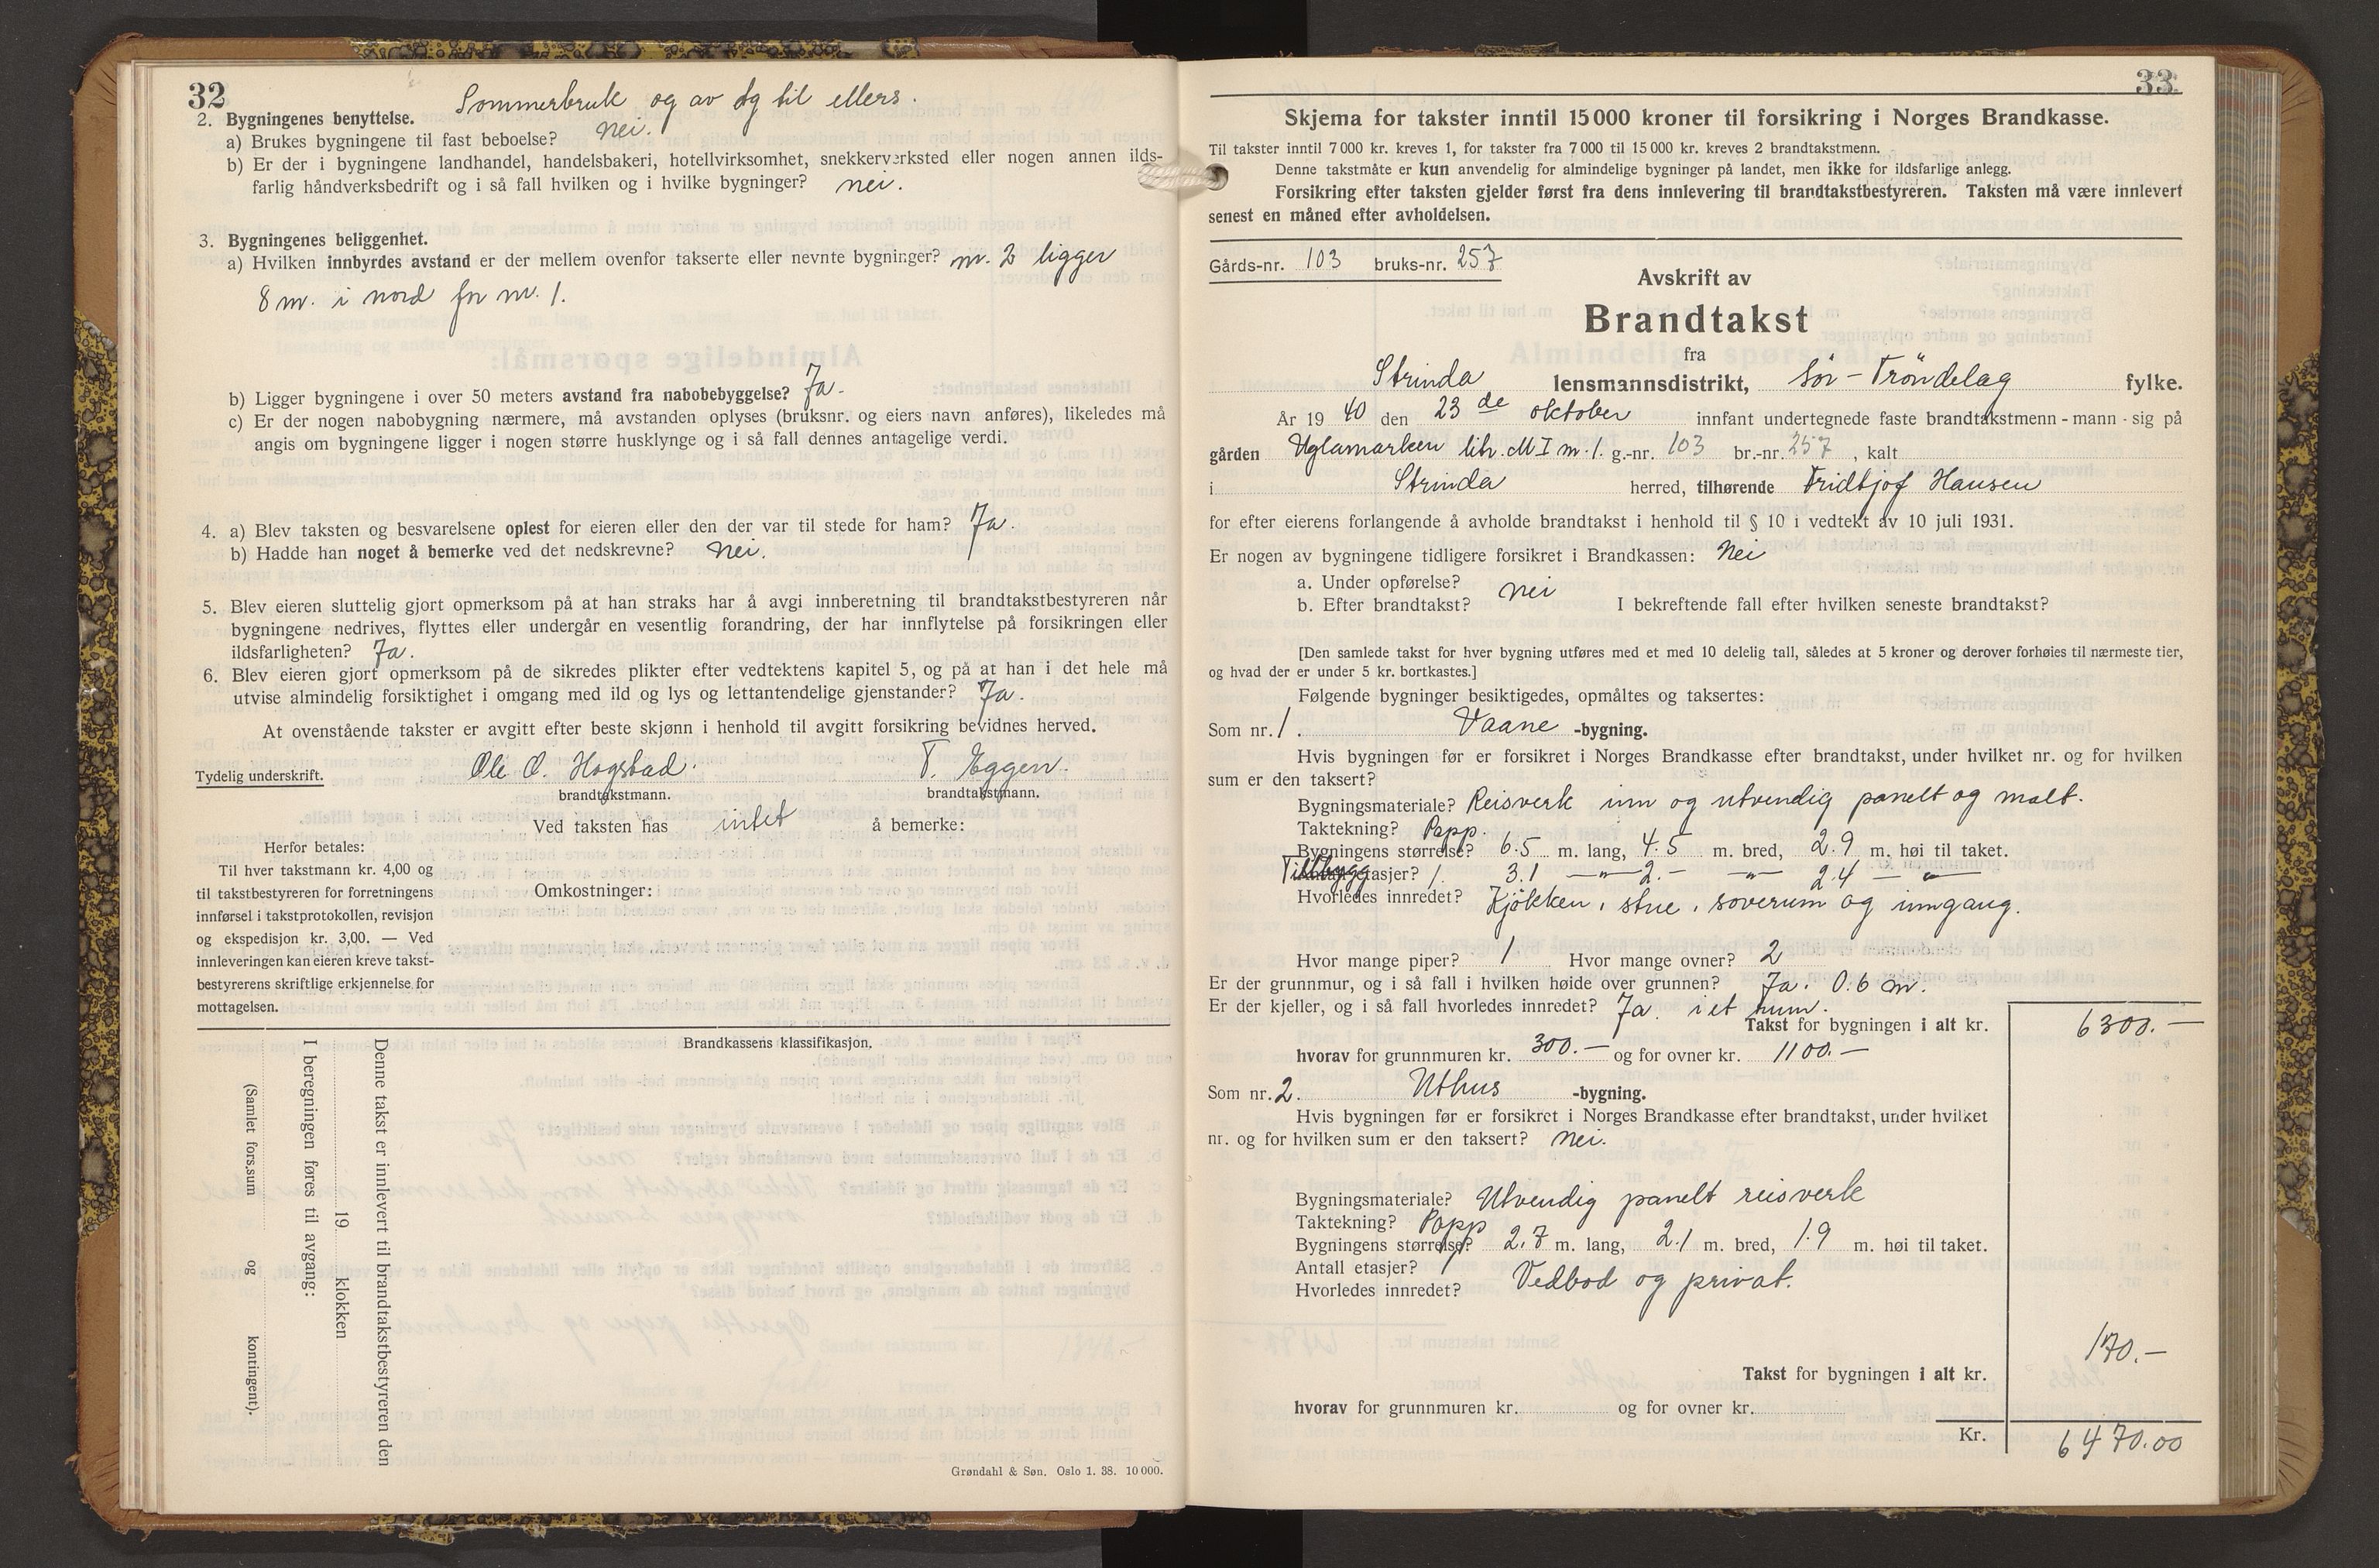 32
Sommerbruk og av og til ellers.
2. Bygningenes benyttelse.
a) Brukes bygningene til fast beboelse? Nei.
b) Er der i bygningene landhandel, handelsbakeri, hotellvirksomhet, snekkerverksted eller nogen annen ilds-
farlig håndverksbedrift og i så fall hvilken og i hvilke bygninger? nei.
3. Bygningenes beliggenhet.
a) Hvilken innbyrdes avstand er der mellem ovenfor takserte eller nevnte bygninger? nr. 2 ligger
8 m. i nord for nr. 1.
b) Ligger bygningene i over 50 meters avstand fra nabobebyggelse? Ja.
c) Er der nogen nabobygning nærmere, må avstanden oplyses (bruksnr. og eiers navn anføres), likeledes må
angis om bygningene ligger i nogen større husklynge og i så fall dennes antagelige verdi.
4. a) Blev taksten og besvarelsene oplest for eieren eller den der var til stede for ham? Ja.
b) Hadde han noget å bemerke ved det nedskrevne? Nei.
5. Blev eieren sluttelig gjort opmerksom på at han straks har å avgi innberetning til brandtakstbestyreren når
bygningene nedrives, flyttes eller undergår en vesentlig forandring, der har innflytelse på forsikringen eller
ildsfarligheten? Ja.
6. Blev eieren gjort opmerksom på de sikredes plikter efter vedtektens kapitel 5, og på at han i det hele må
utvise almindelig forsiktighet i omgang med ild og lys og lettantendelige gjenstander? Ja.
At ovenstående takster er avgitt efter beste skjønn i henhold til avgitt forsikring bevidnes herved.
Tydelig underskrift. Ole O. Hogstad. T. Eggen.
brandtakstmann. brandtakstmann.
Ved taksten has intet å bemerke:
Herfor betales:
Til hver takstmann kr. 4,00 og
til takstbestyreren for forretningens
innførsel i takstprotokollen, revisjon
og ekspedisjon kr. 3,00. — Ved
innleveringen kan eieren kreve takst-
bestyrerens skriftlige erkjennelse for
mottagelsen.
Omkostninger:
Brandkassens klassifikasjon.
Denne takst er innlevert til brandtakstbestyreren den
19 klokken
I beregningen føres til avgang:
(Samlet fors.sum og kontingent).
Grøndahl & Søn. Oslo 1. 38. 10 000.
33
Skjema for takster inntil 15 000 kroner til forsikring i Norges Brandkasse.
Til takster inntil 7 000 kr. kreves 1, for takster fra 7 000 til 15 000 kr. kreves 2 brandtakstmenn.
Denne takstmåte er kun anvendelig for almindelige bygninger på landet, men ikke for ildsfarlige anlegg.
Forsikring efter taksten gjelder først fra dens innlevering til brandtakstbestyreren. Taksten må være innlevert
senest en måned efter avholdelsen.
Gårds-nr. 103 bruks-nr. 257
Avskrift av
Brandtakst
fra
Strinda lensmannsdistrikt, Sör-Tröndelag fylke.
År 1940 den 23de oktober innfant undertegnede faste brandtakstmenn - mann - sig på
gården Uglamarken litr. M I nr. 1. g.-nr. 103 br.-nr. 257, kalt
i Strinda herred, tilhørende Fridtjof Hansen
for efter eierens forlangende å avholde brandtakst i henhold til § 10 i vedtekt av 10 juli 1931.
Er nogen av bygningene tidligere forsikret i Brandkassen: Nei
a. Under opførelse? nei
b. Efter brandtakst? I bekreftende fall efter hvilken seneste brandtakst?
[Den samlede takst for hver bygning utføres med et med 10 delelig tall, således at 5 kroner og derover forhøies til nærmeste tier,
og hvad der er under 5 kr. bortkastes.]
Følgende bygninger besiktigedes, opmåltes og taksertes:
Som nr. 1. Vaane -bygning.
Hvis bygningen før er forsikret i Norges Brandkasse efter brandtakst, under hvilket nr. og for hvilken
sum er den taksert?
Bygningsmateriale? Reisverk inn og utvendig panelt og malt.
Taktekning? Papp.
Bygningens størrelse? 6.5 m. lang, 4.5 m. bred, 2.9 m. høi til taket.
Tilbygg etasjer? 1. 3.1 —"— 2.- —"— 2.4 —"—
Hvorledes innredet? Kjökken, stue, soverum og inngang.
Hvor mange piper? 1 Hvor mange ovner? 2
Er der grunnmur, og i så fall i hvilken høide over grunnen? Ja. 0.6 m.
Er der kjeller, og i så fall hvorledes innredet? Ja. i et rum.
Takst for bygningen i alt kr. 6300.—
hvorav for grunnmuren kr. 300.— og for ovner kr. 1100.—
Som nr. 2. Uthus -bygning.
Hvis bygningen før er forsikret i Norges Brandkasse efter brandtakst, under hvilket
nr. og for hvilken sum er den taksert? Nei.
Bygningsmateriale? Utvendig panelt reisverk
Taktekning? Papp
Bygningens størrelse? 2.7 m. lang, 2.1 m. bred, 1.9 m. høi til taket.
Antall etasjer? 1
Hvorledes innredet? Vedbod og privat.
170.—
Takst for bygningen i alt kr.
hvorav for grunnmuren kr. og for ovner kr.
Kr. 6470.00